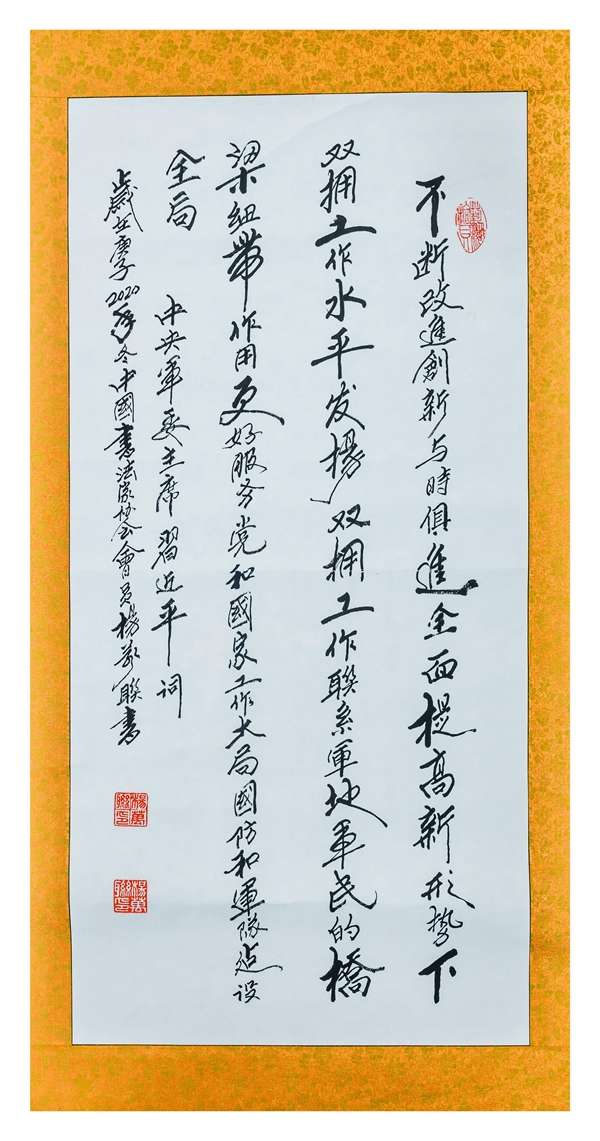 不断改進創新与時俱進全面提高新形势下
双拥工作水平发揚双拥工作聯系軍地军民的橋
梁纽帶作用更好服务党和國家工作大局國防和軍隊建设
全局
中央軍委主席習近平词
歲在庚子2020年冬中國書法家协会會员楊萬聯書
楊萬聯印
楊萬聯印